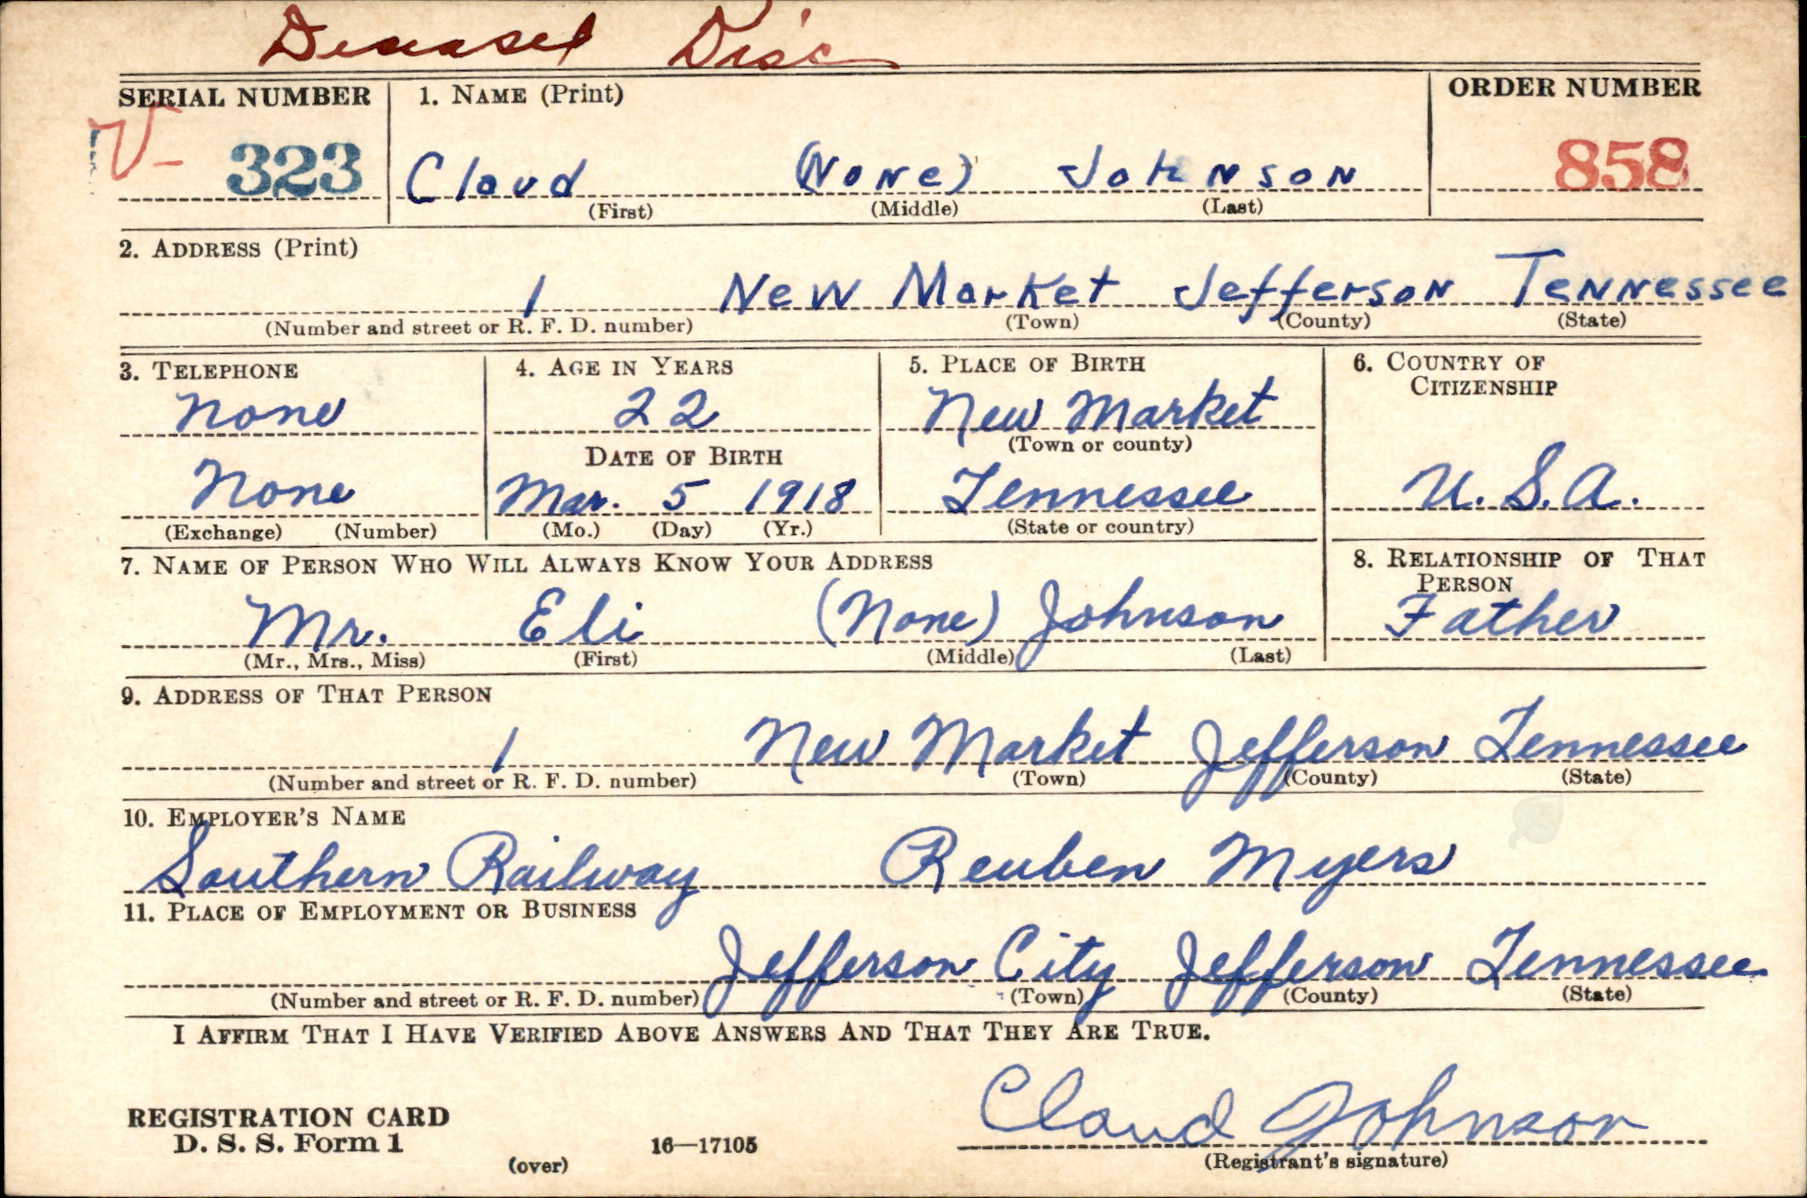 Deceased Disc
SERIAL NUMBER 1. NAME (Print) ORDER NUMBER
V- 323 Claud (None) Johnson 858
(First) (Middle) (Last)
2. ADDRESS (Print)
1 New Market Jefferson Tennessee
(Number and street or R. F. D. number) (Town) (County) (State)
3. TELEPHONE 4. AGE IN YEARS 5. PLACE OF BIRTH 6. COUNTRY OF
CITIZENSHIP
None 22 New Market
(Town or county)
DATE OF BIRTH
None Mar. 5 1918 Tennessee U.S.A.
(Exchange) (Number) (Mo.) (Day) (Yr.) (State or country)
7. NAME OF PERSON WHO WILL ALWAYS KNOW YOUR ADDRESS 8. RELATIONSHIP OF THAT
PERSON
Mr. Eli (None) Johnson Father
(Mr., Mrs., Miss) (First) (Middle) (Last)
9. ADDRESS OF THAT PERSON
1 New Market Jefferson Tennessee
(Number and street or R. F. D. number) (Town) (County) (State)
10. EMPLOYER'S NAME
Southern Railway Reuben Myers
11. PLACE OF EMPLOYMENT OR BUSINESS
Jefferson City Jefferson Tennessee
(Number and street or R. F. D. number) (Town) (County) (State)
I AFFIRM THAT I HAVE VERIFIED ABOVE ANSWERS AND THAT THEY ARE TRUE.
Claud Johnson
REGISTRATION CARD
D. S. S. Form 1 16—17105
(over) (Registrant's signature)